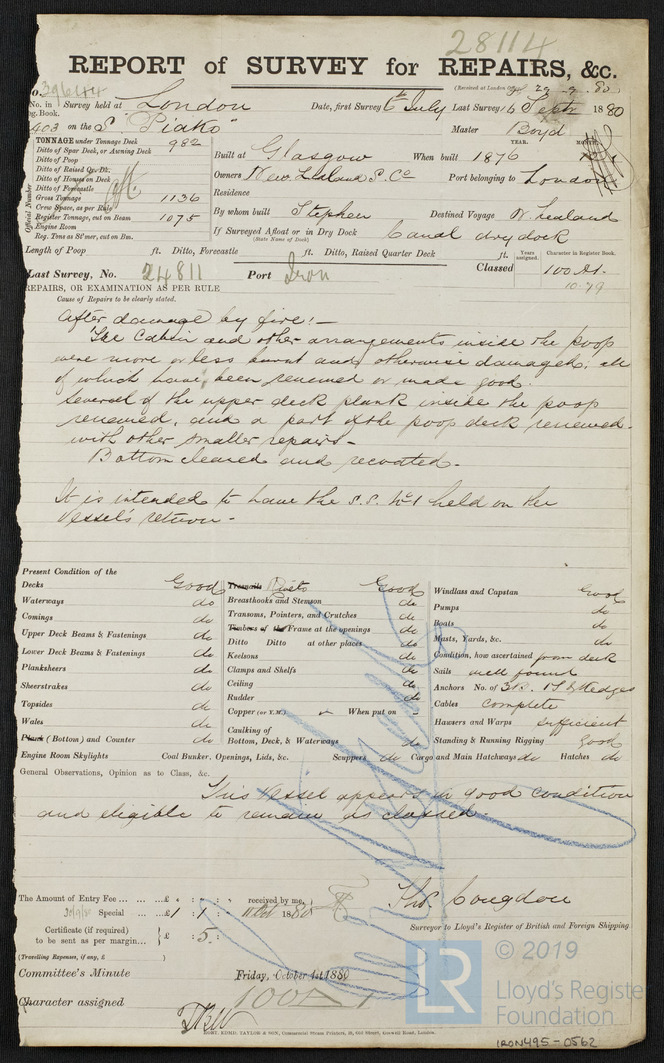 28114
REPORT of SURVEY for REPAIRS, &c.
No. 39644 (Received at London 29.9.80)
No. in Survey held at London Date, first Survey 6th July Last Survey 16 Septr 1880
eg. Book.
403 on the S "Piako" Master Boyd
TONNAGE under Tonnage Deck 982
Ditto of Spar Deck, or Awning Deck
Ditto of Poop
Ditto of Raised Qr. Dk.
Ditto of Houses on Deck
Ditto of Forecastle
Gross Tonnage 1136
Crew Space, as per Rule
Register Tonnage, cut on Beam 1075
Engine Room
Reg. Tons as St'mer, cut on Bm.
Official Number
YEAR. MONTH.
Built at Glasgow When built 1876
Owners New Zealand S. Co Port belonging to London
Residence
By whom built Stephen Destined Voyage N. Zealand
If Surveyed Afloat or in Dry Dock Canal dry dock
(State Name of Dock)
Length of Poop ft. Ditto, Forecastle ft. Ditto, Raised Quarter Deck ft.
Years assigned. Character in Register Book.
Last Survey, No. 24811 Port Iron Classed 100 A1.
10.79
REPAIRS, OR EXAMINATION AS PER RULE
Cause of Repairs to be clearly stated.
After damage by fire:—
The Cabin and other arrangements inside the poop
were more or less burnt and otherwise damaged; all
of which have been renewed or made good.
Several of the upper deck plank inside the poop
renewed, and a part of the poop deck renewed.
with other smaller repairs—
Bottom cleaned and recoated.
It is intended to have the S.S. No 1 held on the
Vessel's return—
Present Condition of the
Decks Good
Waterways do
Comings do
Upper Deck Beams & Fastenings do
Lower Deck Beams & Fastenings do
Planksheers do
Sheerstrakes do
Topsides do
Wales do
Plank (Bottom) and Counter do
Engine Room Skylights Coal Bunker, Openings, Lids, &c. Scuppers do Cargo and Main Hatchways do Hatches do
Treenails Rivets Good
Breasthooks and Stemson do
Transoms, Pointers, and Crutches do
Timbers of the Frame at the openings do
Ditto Ditto at other places do
Keelsons do
Clamps and Shelfs do
Ceiling do
Rudder do
Copper (or Y.M.) When put on
Caulking of
Bottom, Deck, & Waterways do
Windlass and Capstan Good
Pumps do
Boats do
Masts, Yards, &c. do
Condition, how ascertained from deck
Sails well found
Anchors No. of 3B. 1S & Kedges
Cables complete
Hawsers and Warps sufficient
Standing & Running Rigging good
General Observations, Opinion as to Class, &c.
This Vessel appears in good condition
and eligible to remain as classed.
The Amount of Entry Fee £ : : received by me,
30/9/80 Special £1 : 1 : 11 Oct 1880
Certificate (if required) to be sent as per margin £ : 5 :
(Travelling Expenses, if any, £ )
Thos. Congdon
Surveyor to Lloyd's Register of British and Foreign Shipping.
Committee's Minute Friday, October 1st 1880
Character assigned 100 A 1
FORT, EDMD. TAYLOR & SON, Commercial Steam Printers, 28, Old Street, Goswell Road, London.
© 2019
LR
Lloyd's Register
Foundation
IRON495-0562